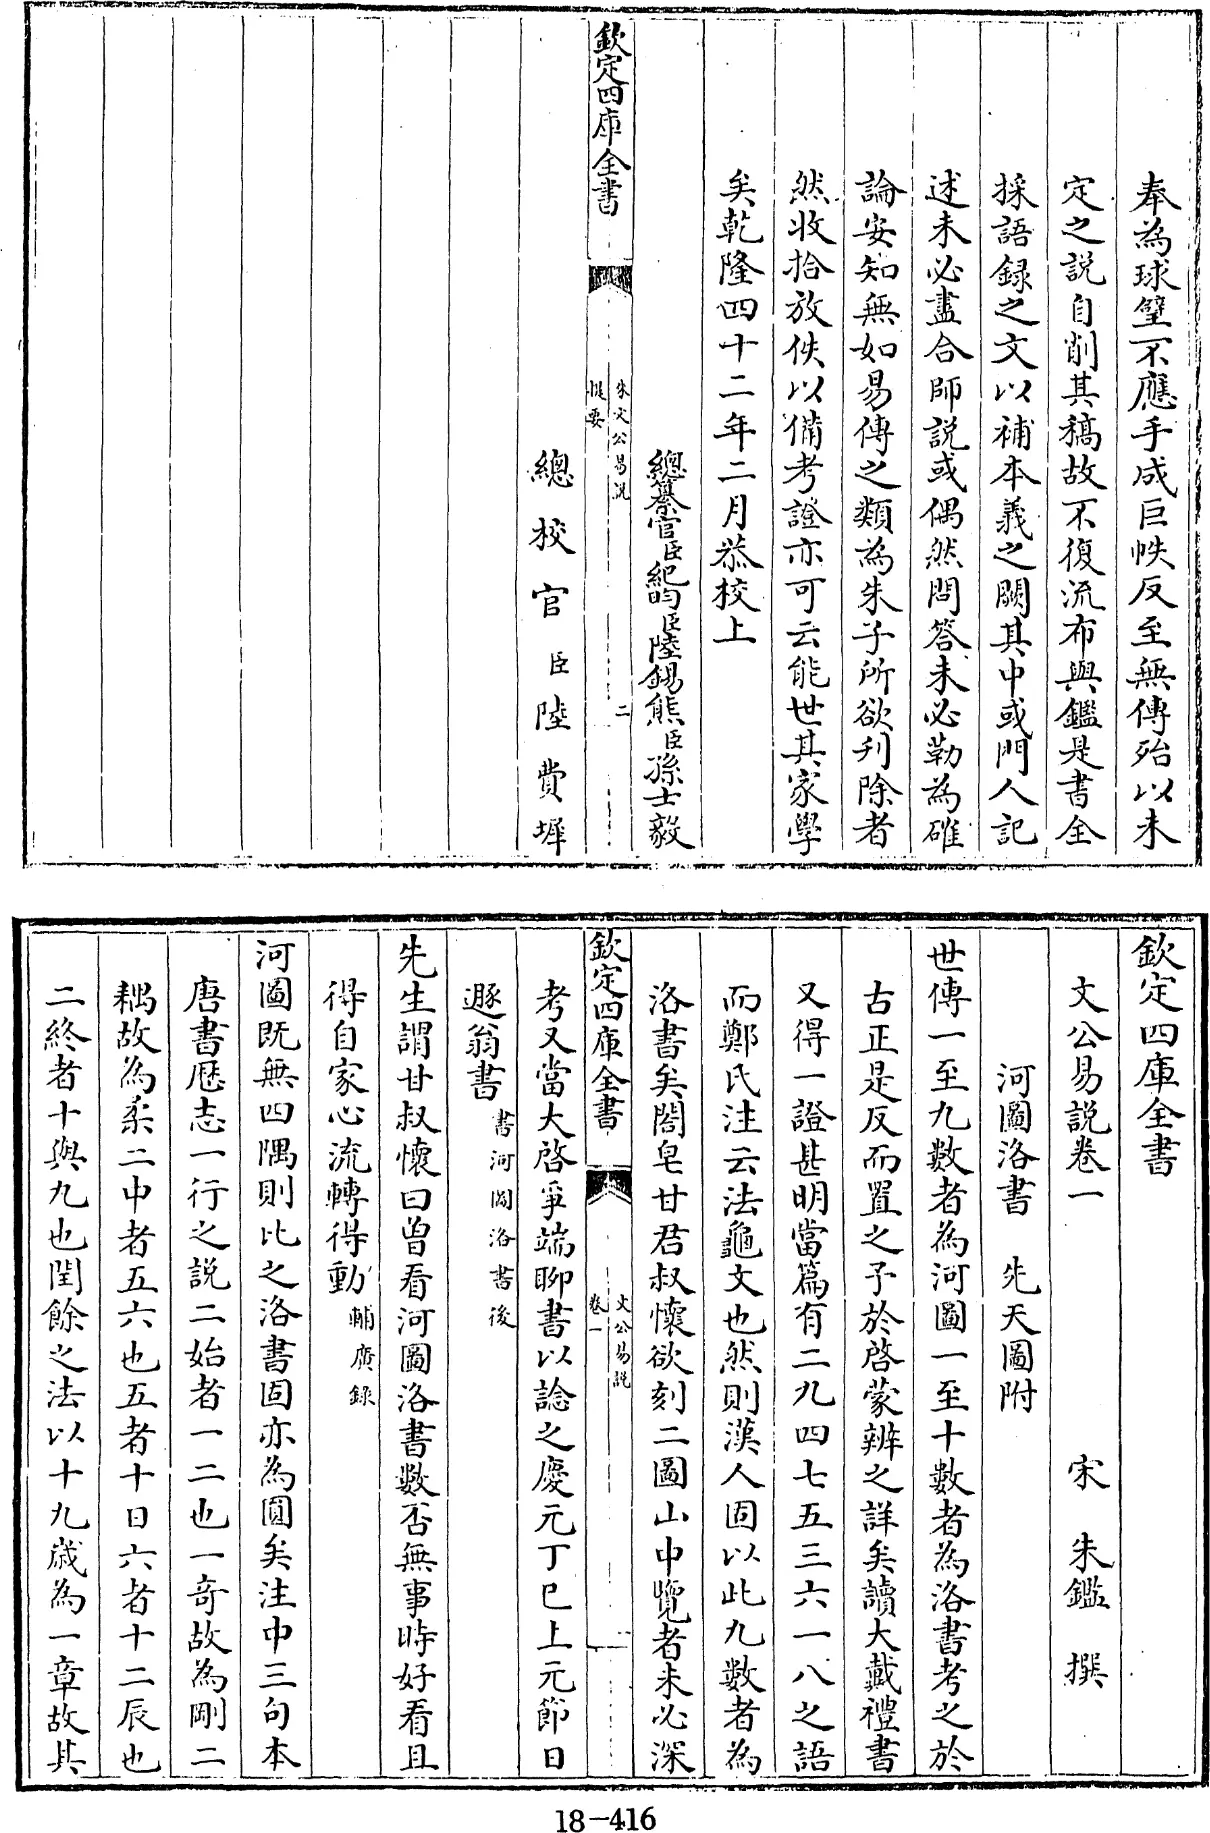 奉為球璧不應手成巨帙反至無傳殆以未
定之説自削其稿故不復流布與鑑是書全
採語録之文以補本義之闕其中或門人記
述未必盡合師説或偶然問答未必勒為確
論安知無如易傳之類為朱子所欲刋除者
然收拾放佚以備考證亦可云能世其家學
矣乾隆四十二年二月恭校上
總纂官臣紀昀臣陸錫熊臣孫士毅
欽定四庫全書
朱文公易説
提要
二
總校官臣陸費墀
欽定四庫全書
文公易説卷一 宋 朱鑑 撰
河圖洛書 先天圖附
世傳一至九數者為河圖一至十數者為洛書考之於
古正是反而置之予於啓蒙辨之詳矣讀大戴禮書
又得一證甚明當篇有二九四七五三六一八之語
而鄭氏注云法龜文也然則漢人固以此九數者為
洛書矣閤皂甘君叔懷欲刻二圖山中覽者未必深
欽定四庫全書
文公易説
卷一
一
考又當大啓爭端聊書以諗之慶元丁巳上元節日
遯翁書書河圖洛書後
先生謂甘叔懷曰曾看河圖洛書數否無事時好看且
得自家心流轉得動輔廣錄
河圖既無四隅則比之洛書固亦為圓矣注中三句本
唐書厯志一行之説二始者一二也一奇故為剛二
耦故為柔二中者五六也五者十日六者十二辰也
二終者十與九也閏餘之法以十九歲為一章故其
18-416